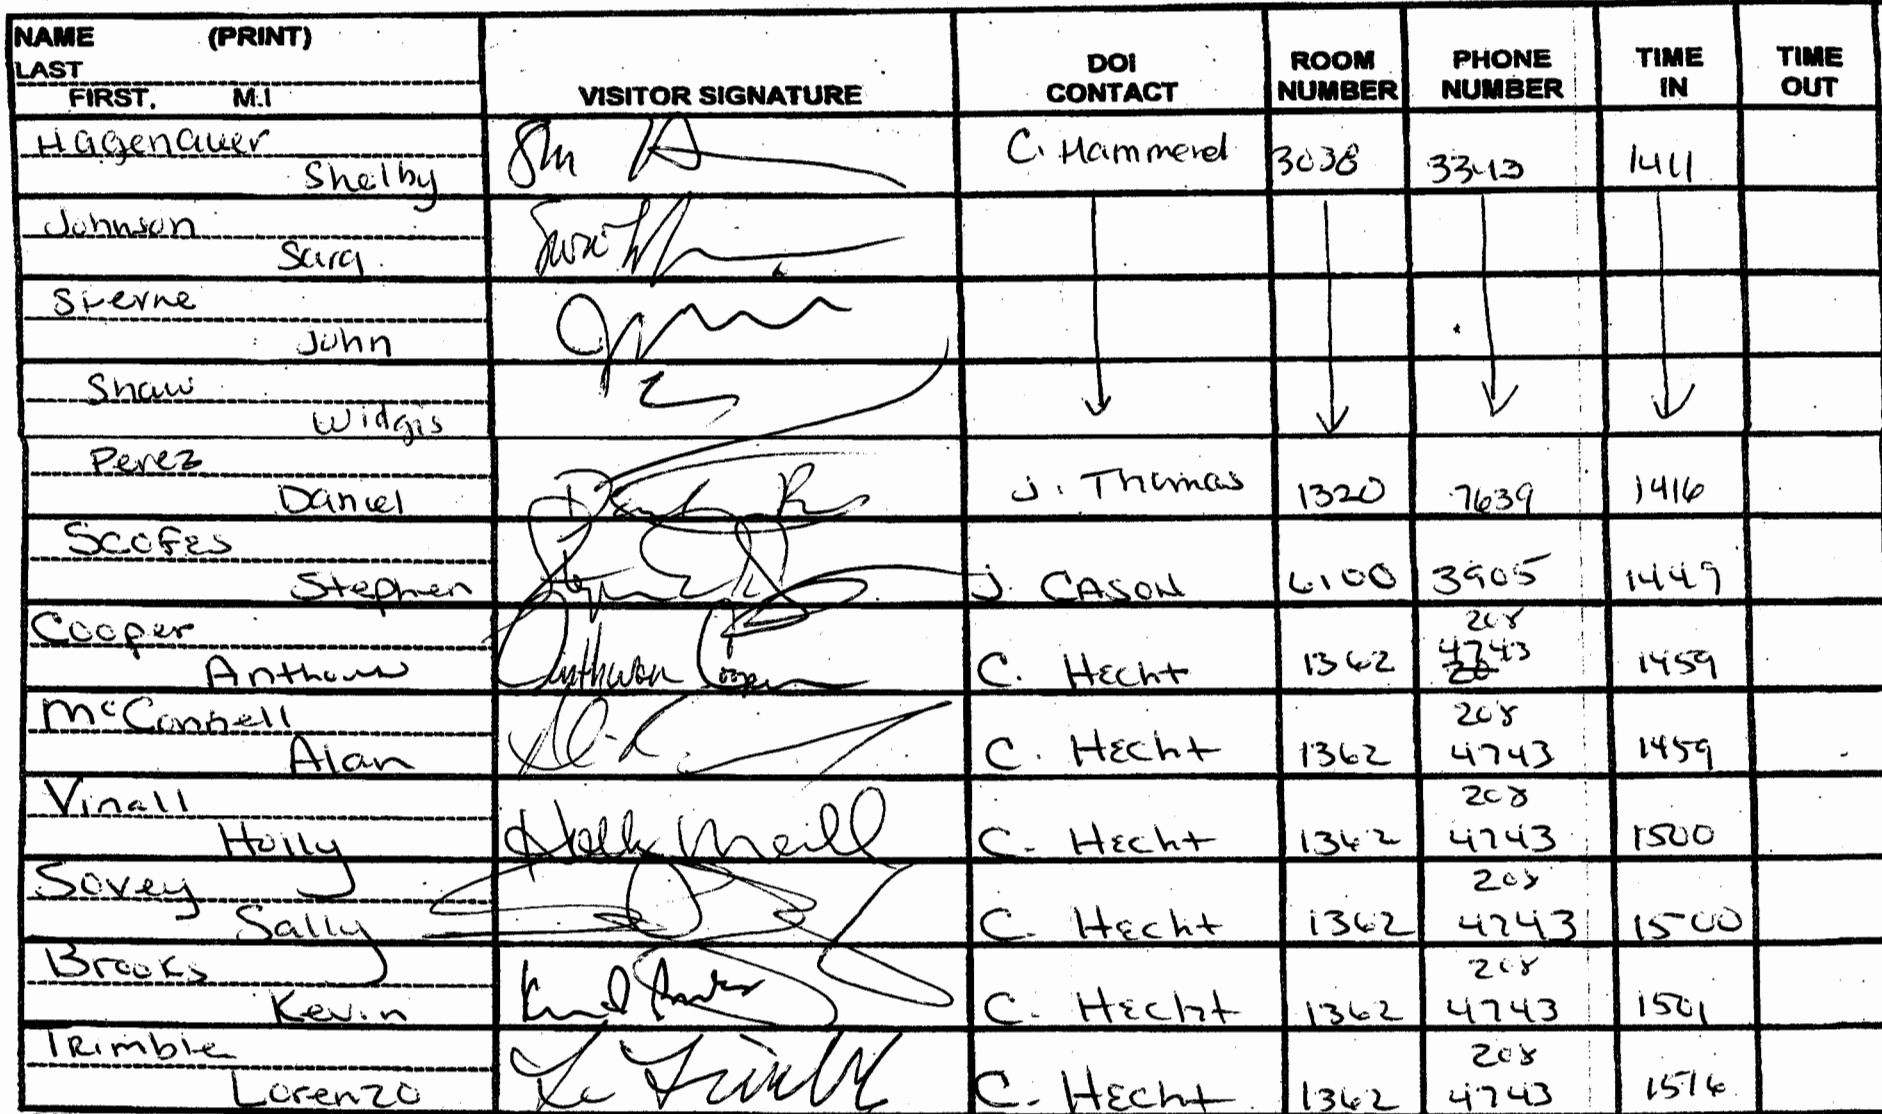 NAME (PRINT)
LAST
FIRST, M.I
VISITOR SIGNATURE
DOI CONTACT
ROOM NUMBER
PHONE NUMBER
TIME IN
TIME OUT
Hagenauer
Shelby C. Hammerel 3038 3343 1411
Johnson
Sara
Sterne
John
Shaw
Widgis
Perez
Daniel J. Thomas 1320 7639 1416
Scofes
Stephen J. CASON 6100 3905 1449
Cooper 208
Anthony C. Hecht 1362 4743 1459
McConnell 208
Alan C. Hecht 1362 4743 1459
Vinall 208
Holly C. Hecht 1362 4743 1500
Sovey 208
Sally C. Hecht 1362 4743 1500
Brooks 208
Kevin C. Hecht 1362 4743 1501
Trimble 208
Lorenzo C. Hecht 1362 4743 1516